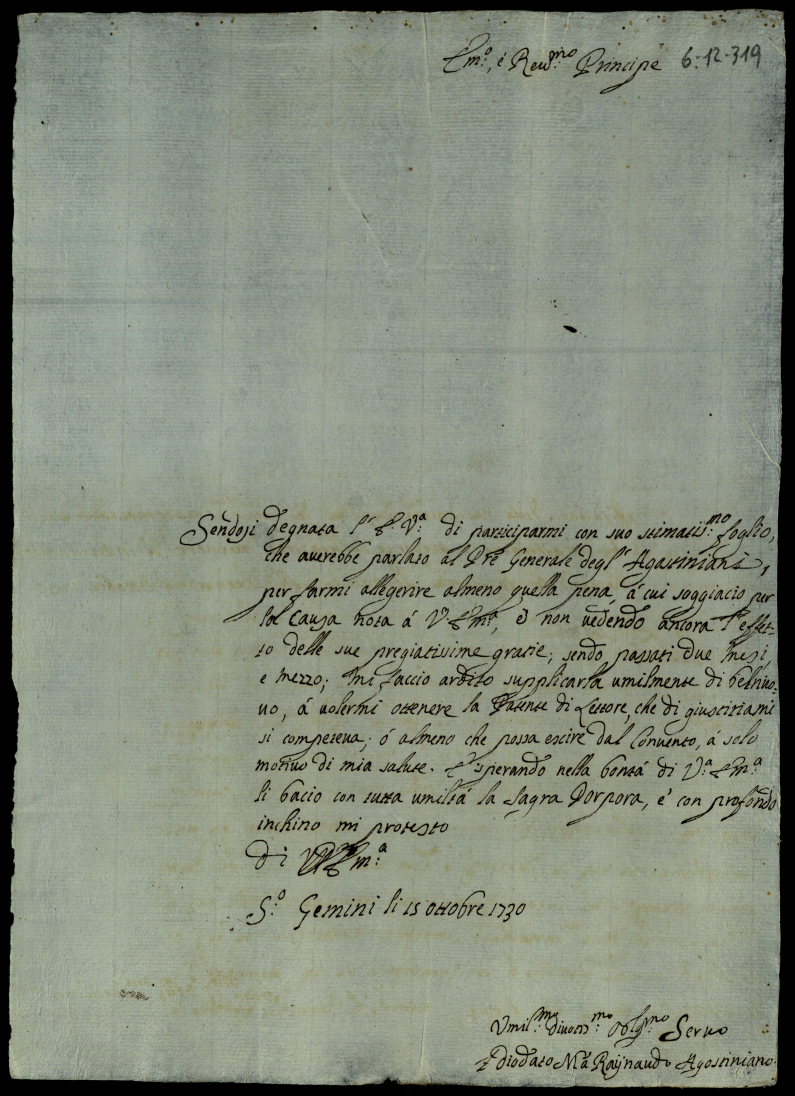 Em:º, é Reu:mo Principe 6-12-319
Sendosi degnata l' E. V:a di participarmi con suo stimatis:mo foglio,
che auerebbe parlato al Pre Generale degl' Agostiniani,
per farmi allegerire almeno quella pena, á cui soggiacio per
sol causa nota á V: Em:a, é non uedendo ancora l' effet-
to delle sue pregiatissime gratie; sendo passati due mesi,
e mezzo; mi faccio ardito supplicarla umilmente di bel nuo-
uo, á uolermi ottenere la Patente di Lettore, che di giustizia mi
si competeua; ó almeno che possa escire dal Conuento, á solo
motiuo di mia salute. E sperando nella bontá di V:a Em:a
li bacio con tutta umiltá la sagra Porpora, é con profondo
inchino mi protesto
di Em:a
S:º Gemini li 15 ottobre 1730
Vmil:mo diuotis:mo Oblg:mo Seruo
Diodato Ma Raijnaudo Agostiniano.